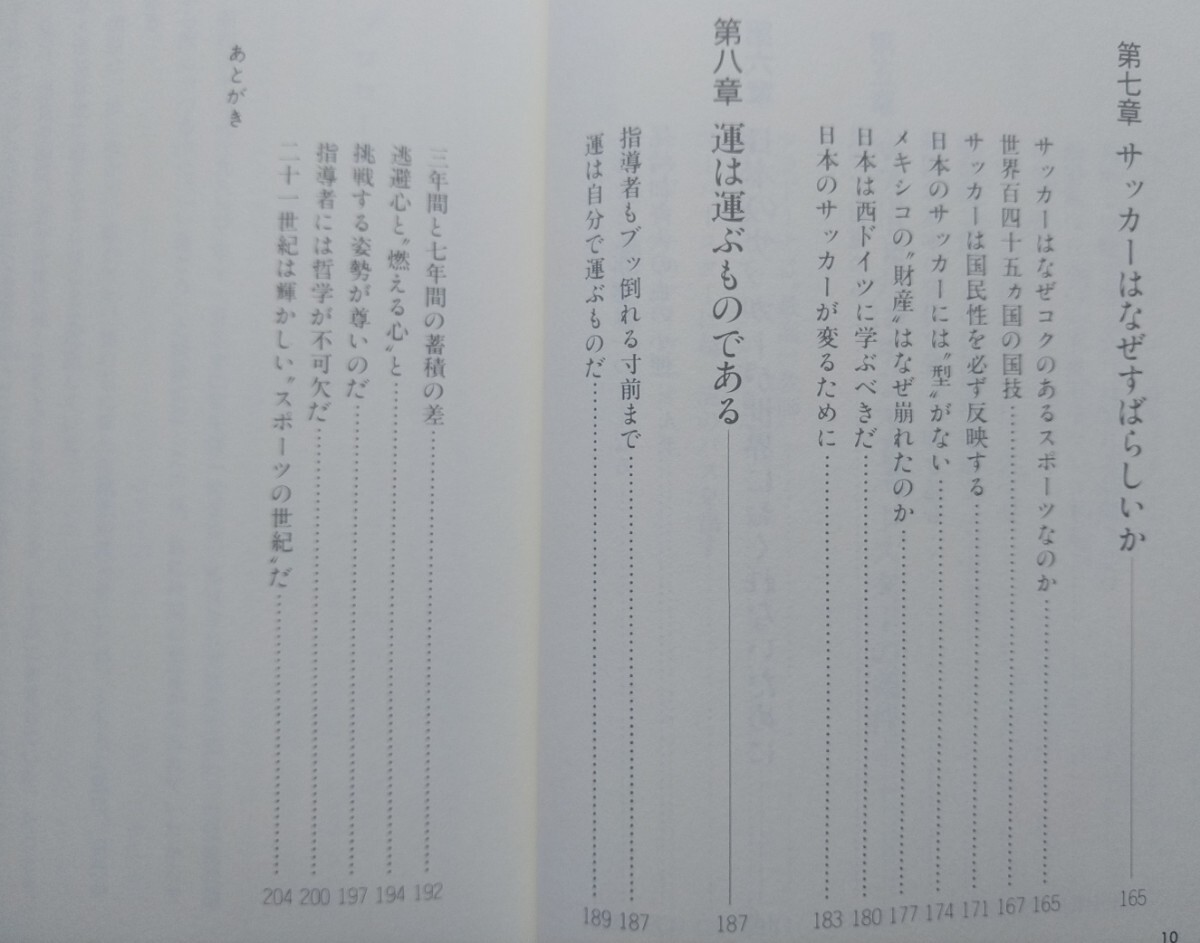 第七章 サッカーはなぜすばらしいか 165
サッカーはなぜコクのあるスポーツなのか 165
世界百四十五ヵ国の国技 167
サッカーは国民性を必ず反映する 171
日本のサッカーには〝型〟がない 174
メキシコの〝財産〟はなぜ崩れたのか 177
日本は西ドイツに学ぶべきだ 180
日本のサッカーが変るために 183
第八章 運は運ぶものである 187
指導者もブッ倒れる寸前まで 187
運は自分で運ぶものだ 189
三年間と七年間の蓄積の差 192
逃避心と〝燃える心〟と 194
挑戦する姿勢が尊いのだ 197
指導者には哲学が不可欠だ 200
二十一世紀は輝かしい〝スポーツの世紀〟だ 204
あとがき
10